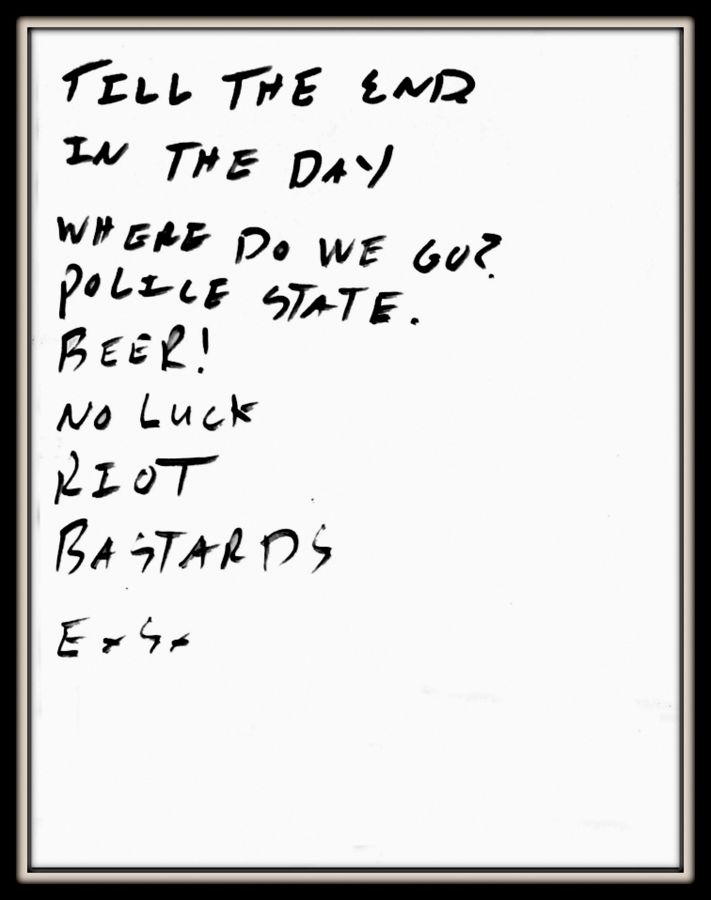 TILL THE END
IN THE DAY
WHERE DO WE GO?
POLICE STATE.
BEER!
NO LUCK
RIOT
BASTARDS
ExSx